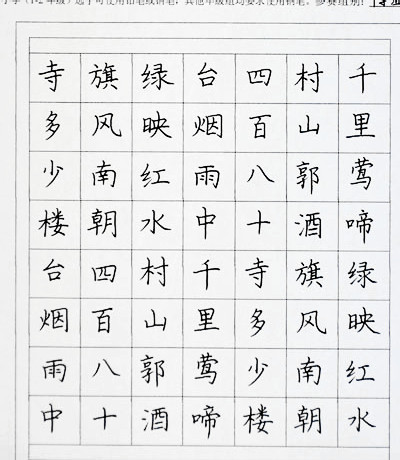 （1-2年级）选手可使用铅笔或钢笔，其他年级组均要求使用钢笔。参赛组别：
千里莺啼绿映红水
村山郭酒旗风南朝
四百八十寺多少楼
台烟雨中千里莺啼
绿映红水村山郭酒
旗风南朝四百八十
寺多少楼台烟雨中